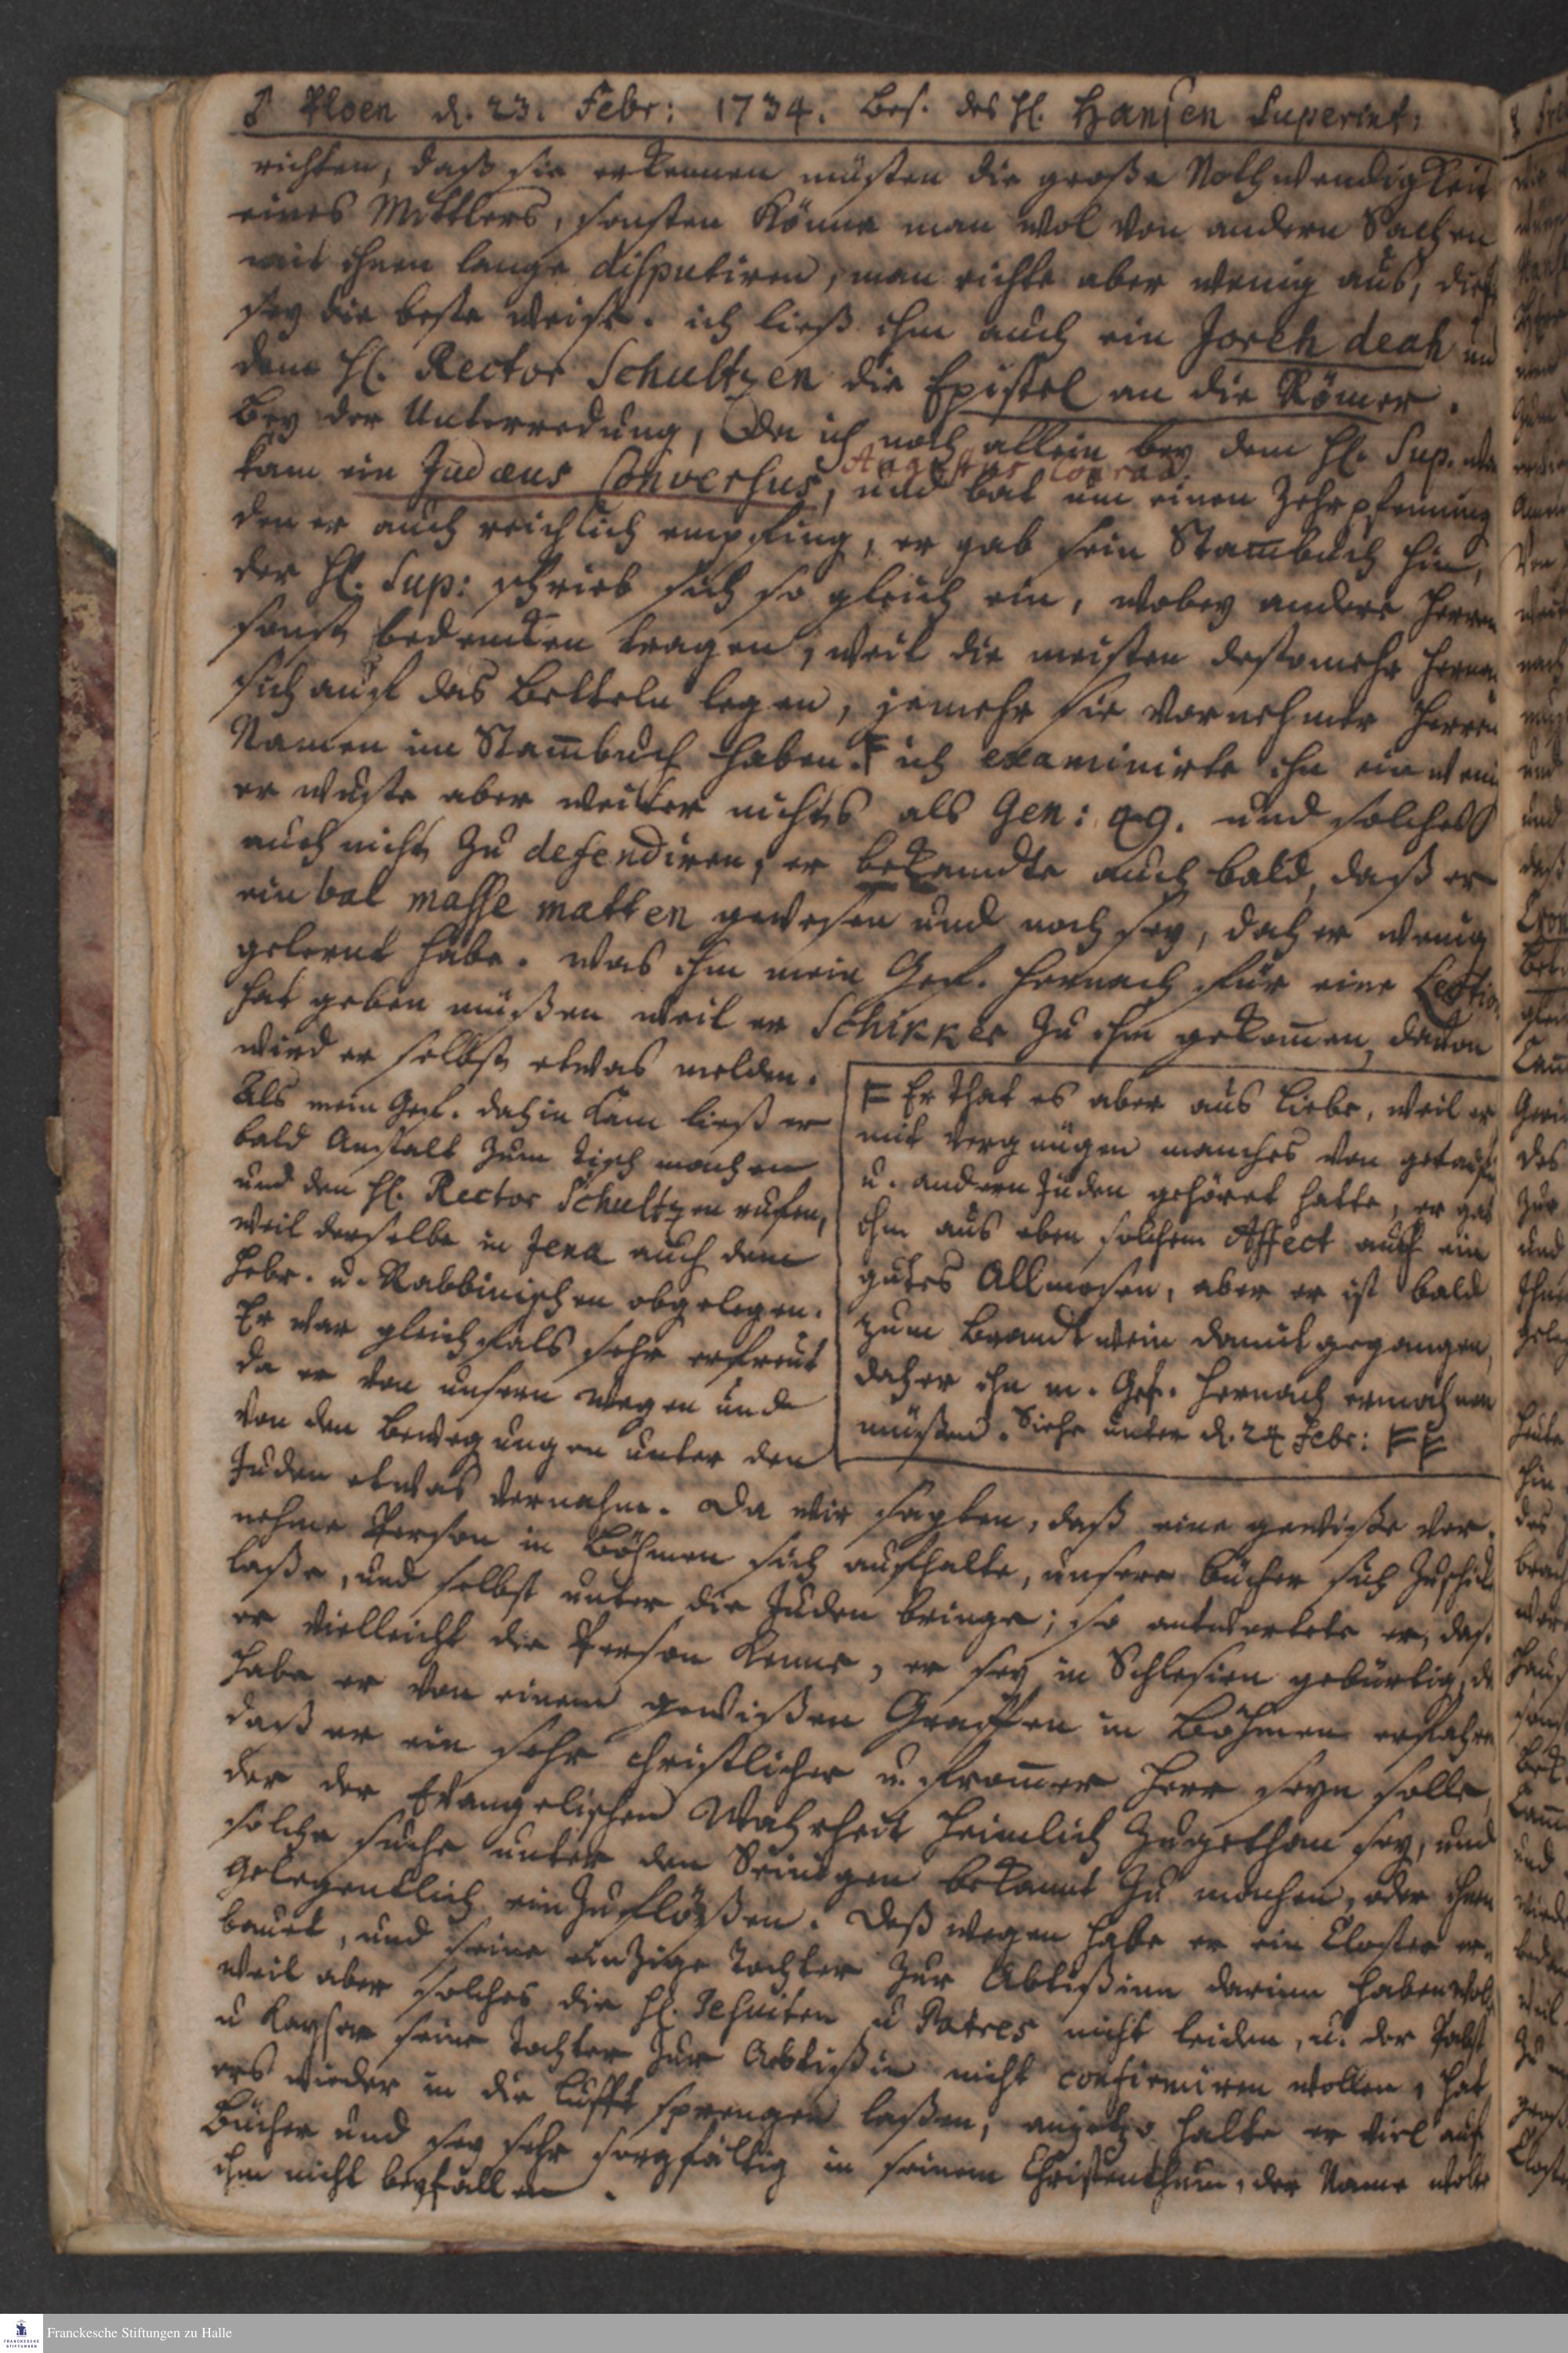 ♂ Ploen d. 23. Febr: 1734. Bes. des H. Hansen Superint:
richten, daß sie erkennen müsten die große Nothwendigkeit
eines Mittlers, sonsten könne man wol von andern Sachen
mit ihnen lange disputiren, man richte aber wenig aus, dieß
sey die beste weise. ich ließ ihm auch ein Joreh deah und
dem H. Rector Schultzen die Epistel an die Römer.
Bey der Unterredung, Da ich noch allein bey dem H. Sup. war
Augustus Conrad
kam ein Judæus Conversus, und bat um einen Zehrpfenning
den er auch reichlich empfing, er gab sein Stambuch hin,
der H. Sup: schrieb sich so gleich ein, wobey andere Herren
sonst bedencken tragen, weil die meisten destomehr herna
sich auf das Betteln legen, jemehr sie vornehmer Herren
Namen im Stam̅buch haben. F ich examinirte ihn ein weni
er wuste aber weiter nichts als Gen: 49. und solches
auch nicht zu defendiren, er bekandte auch bald, daß er
ein bal masse matten gewesen und noch sey, daher wenig
gelernt habe. was ihm mein Gef. hernach für eine Lection
hat geben müßen weil er Schikker zu ihm gekom̅en, davon
wird er selbst etwas melden.
Als mein Gef. dahin kam ließ er
bald Anstalt zum Tisch machen
und den H. Rector Schultzen rufen,
weil derselbe in Jena auch dem
Hebr. u. Rabbinischen obgelegen.
Er war gleichfals sehr erfreut
da er von unsern wegen und
von den Bewegungen unter den
F Er that es aber aus Liebe, weil er
mit vergnügen manches von getauft
u. andern Juden gehöret hatte, er gab
ihm aus eben solchem Affect auch ein
gutes Allmosen, aber er ist bald
zum Brandtwein damit gegangen,
daher ihn m. Gef. hernach ermahnen
müßen. Siehe unter d. 24 Febr: FF
Juden etwas vernahm. Da wir sagten, daß eine gewiße vor-
nehme Person in Böhmen sich aufhalte, unsere Bücher sich zuschick
laße, und selbst unter die Juden bringe; so antwortete er, das.
er vielleicht die Person kenne, er sey in Schlesien gebürtig, da
habe er von einem gewißen Graffen in Böhmen erfahren
daß er ein sehr christlicher u. from̅er Herr seyn solle,
der der Evangelischen Wahrheit heimlich zugethan sey, und
solche suche unter den Seinigen bekannt zu machen, oder ihnen
gelegentlich einzuflößen. Deßwegen habe er ein Closter er-
bauet, und seine einzige Tochter zur Abtißinn darinn haben woll
weil aber solches die H. Jesuiten u Patres nicht leiden, u. der Pabst
u Kayser seine Tochter zur Aebtißin nicht confirmiren wollen, hat
ers wieder in die Lufft sprengen laßen, anjetzo halte er viel auf
Bücher und sey sehr sorgfältig in seinem Christenthum, der Name wolte
ihm nicht beyfallen.
Franckesche Stiftungen zu Halle